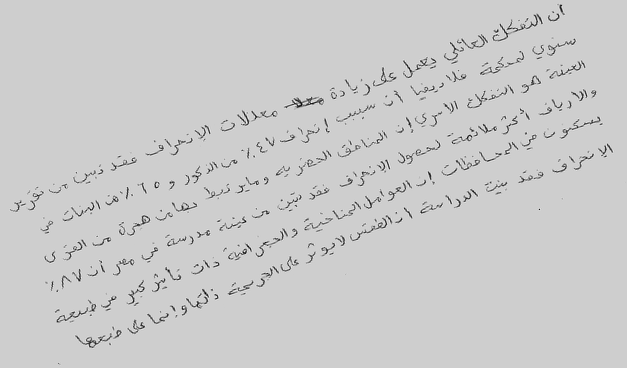 ان التفكك العائلي يعمل على زيادة معدلات الإنحراف فقد تبين من تقرير
سنوي لمحكمة فلاديفيا أن سبب إنحراف ٤٧٪ من الذكور و ٦٥٪ من البنات في
العينة هو التفكك الأسري إن المناطق الحضريه وما يرتبط بها من هجرة من القرى
والأرياف أكثر ملائمة لحصول الإنحراف فقد تبين من عينة مدرسة في مصر أن ٨٧٪
يسكنون في المحافظات إن العوامل المناخية والجغرافية ذات تأثير كبير في طبيعة
الإنحراف فقد بينت الدراسة أن الطقس لا يوثر على الجريمة ذاتها وإنما على طبعها